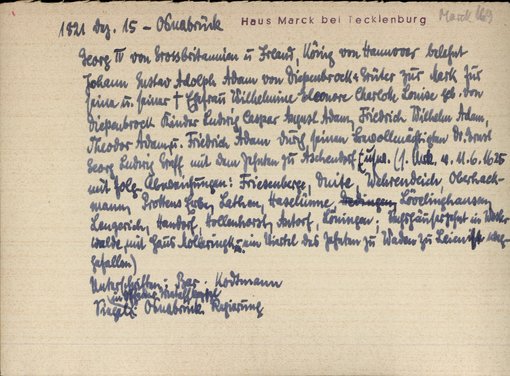 1821 Dez. 15 – Osnabrück
Haus Marck bei Tecklenburg
Marck
Georg IV von Grossbritannien u Irland, König von Hannover belehnt
Johann Gustav Adolph Adam von Diepenbrock-Grüter zur Mark für
seine u. seiner † Ehefrau Wilhelmine Eleonore Charlotte Louise geb. von
Diepenbrock Kinder Ludwig Caspar August Adam, Friedrich Wilhelm Adam,
Theodor Adam u. Friedrich Adam durch seinen Bevollmächtigten Dr. Ernst
Georg Ludwig Graff mit dem Zehnten zu Aschendorf usw. (1. Urk. v. 11.6.1625
mit folg. Abweichungen: Friesenberge, Duite, Wehrendeich, Oberhack-
mann, Brokens Erbe, Lathen, Haselünne, Löveling­hausen,
Lengerich, Handorf, Hollenhorst, Löningen.
walde mit Haus u. ein Viertel des Zehnten zu Waden zu ist weg-
gefallen)
Unterschriften: Bar. Kodtmann
Siegel: Osnabrück. Regierung